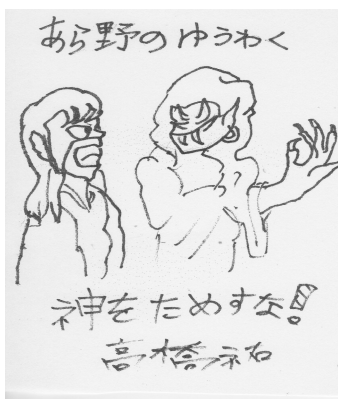 あら野のゆうわく
神をためすな!
高橋祐